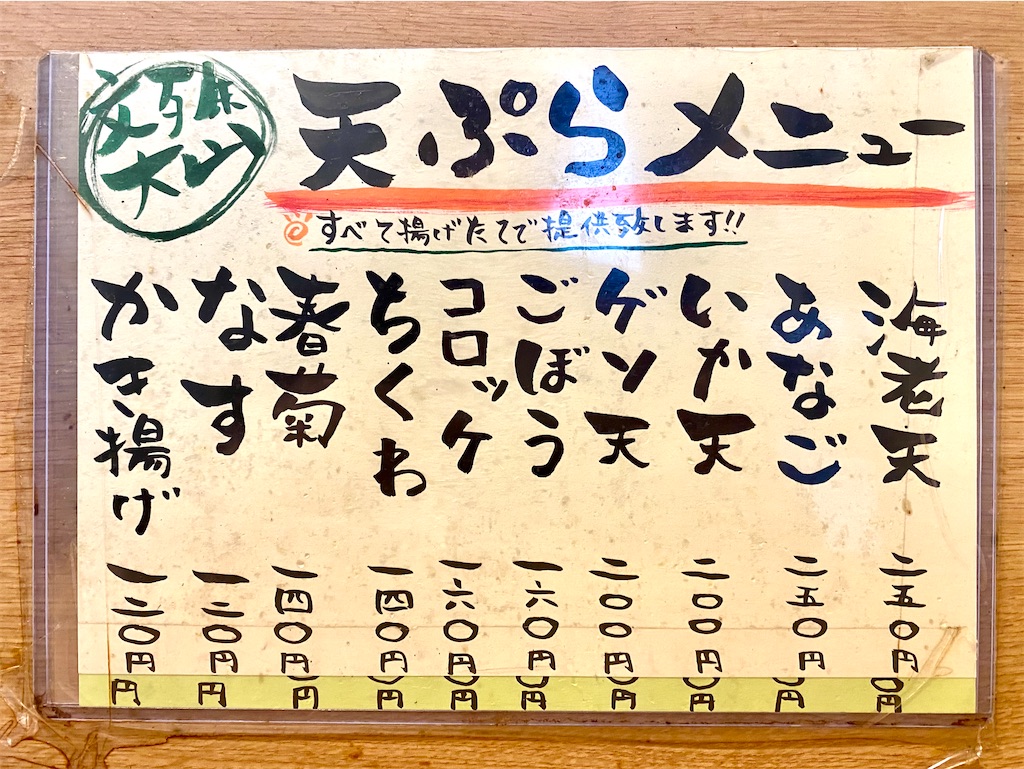 文殊
大山
天ぷらメニュー
すべて揚げたてで提供致します!!
海老天 二五〇円
あなご 二五〇円
いか天 二〇〇円
ゲソ天 二〇〇円
ごぼう 一六〇円
コロッケ 一六〇円
ちくわ 一四〇円
春菊 一四〇円
なす 一二〇円
かき揚げ 一二〇円